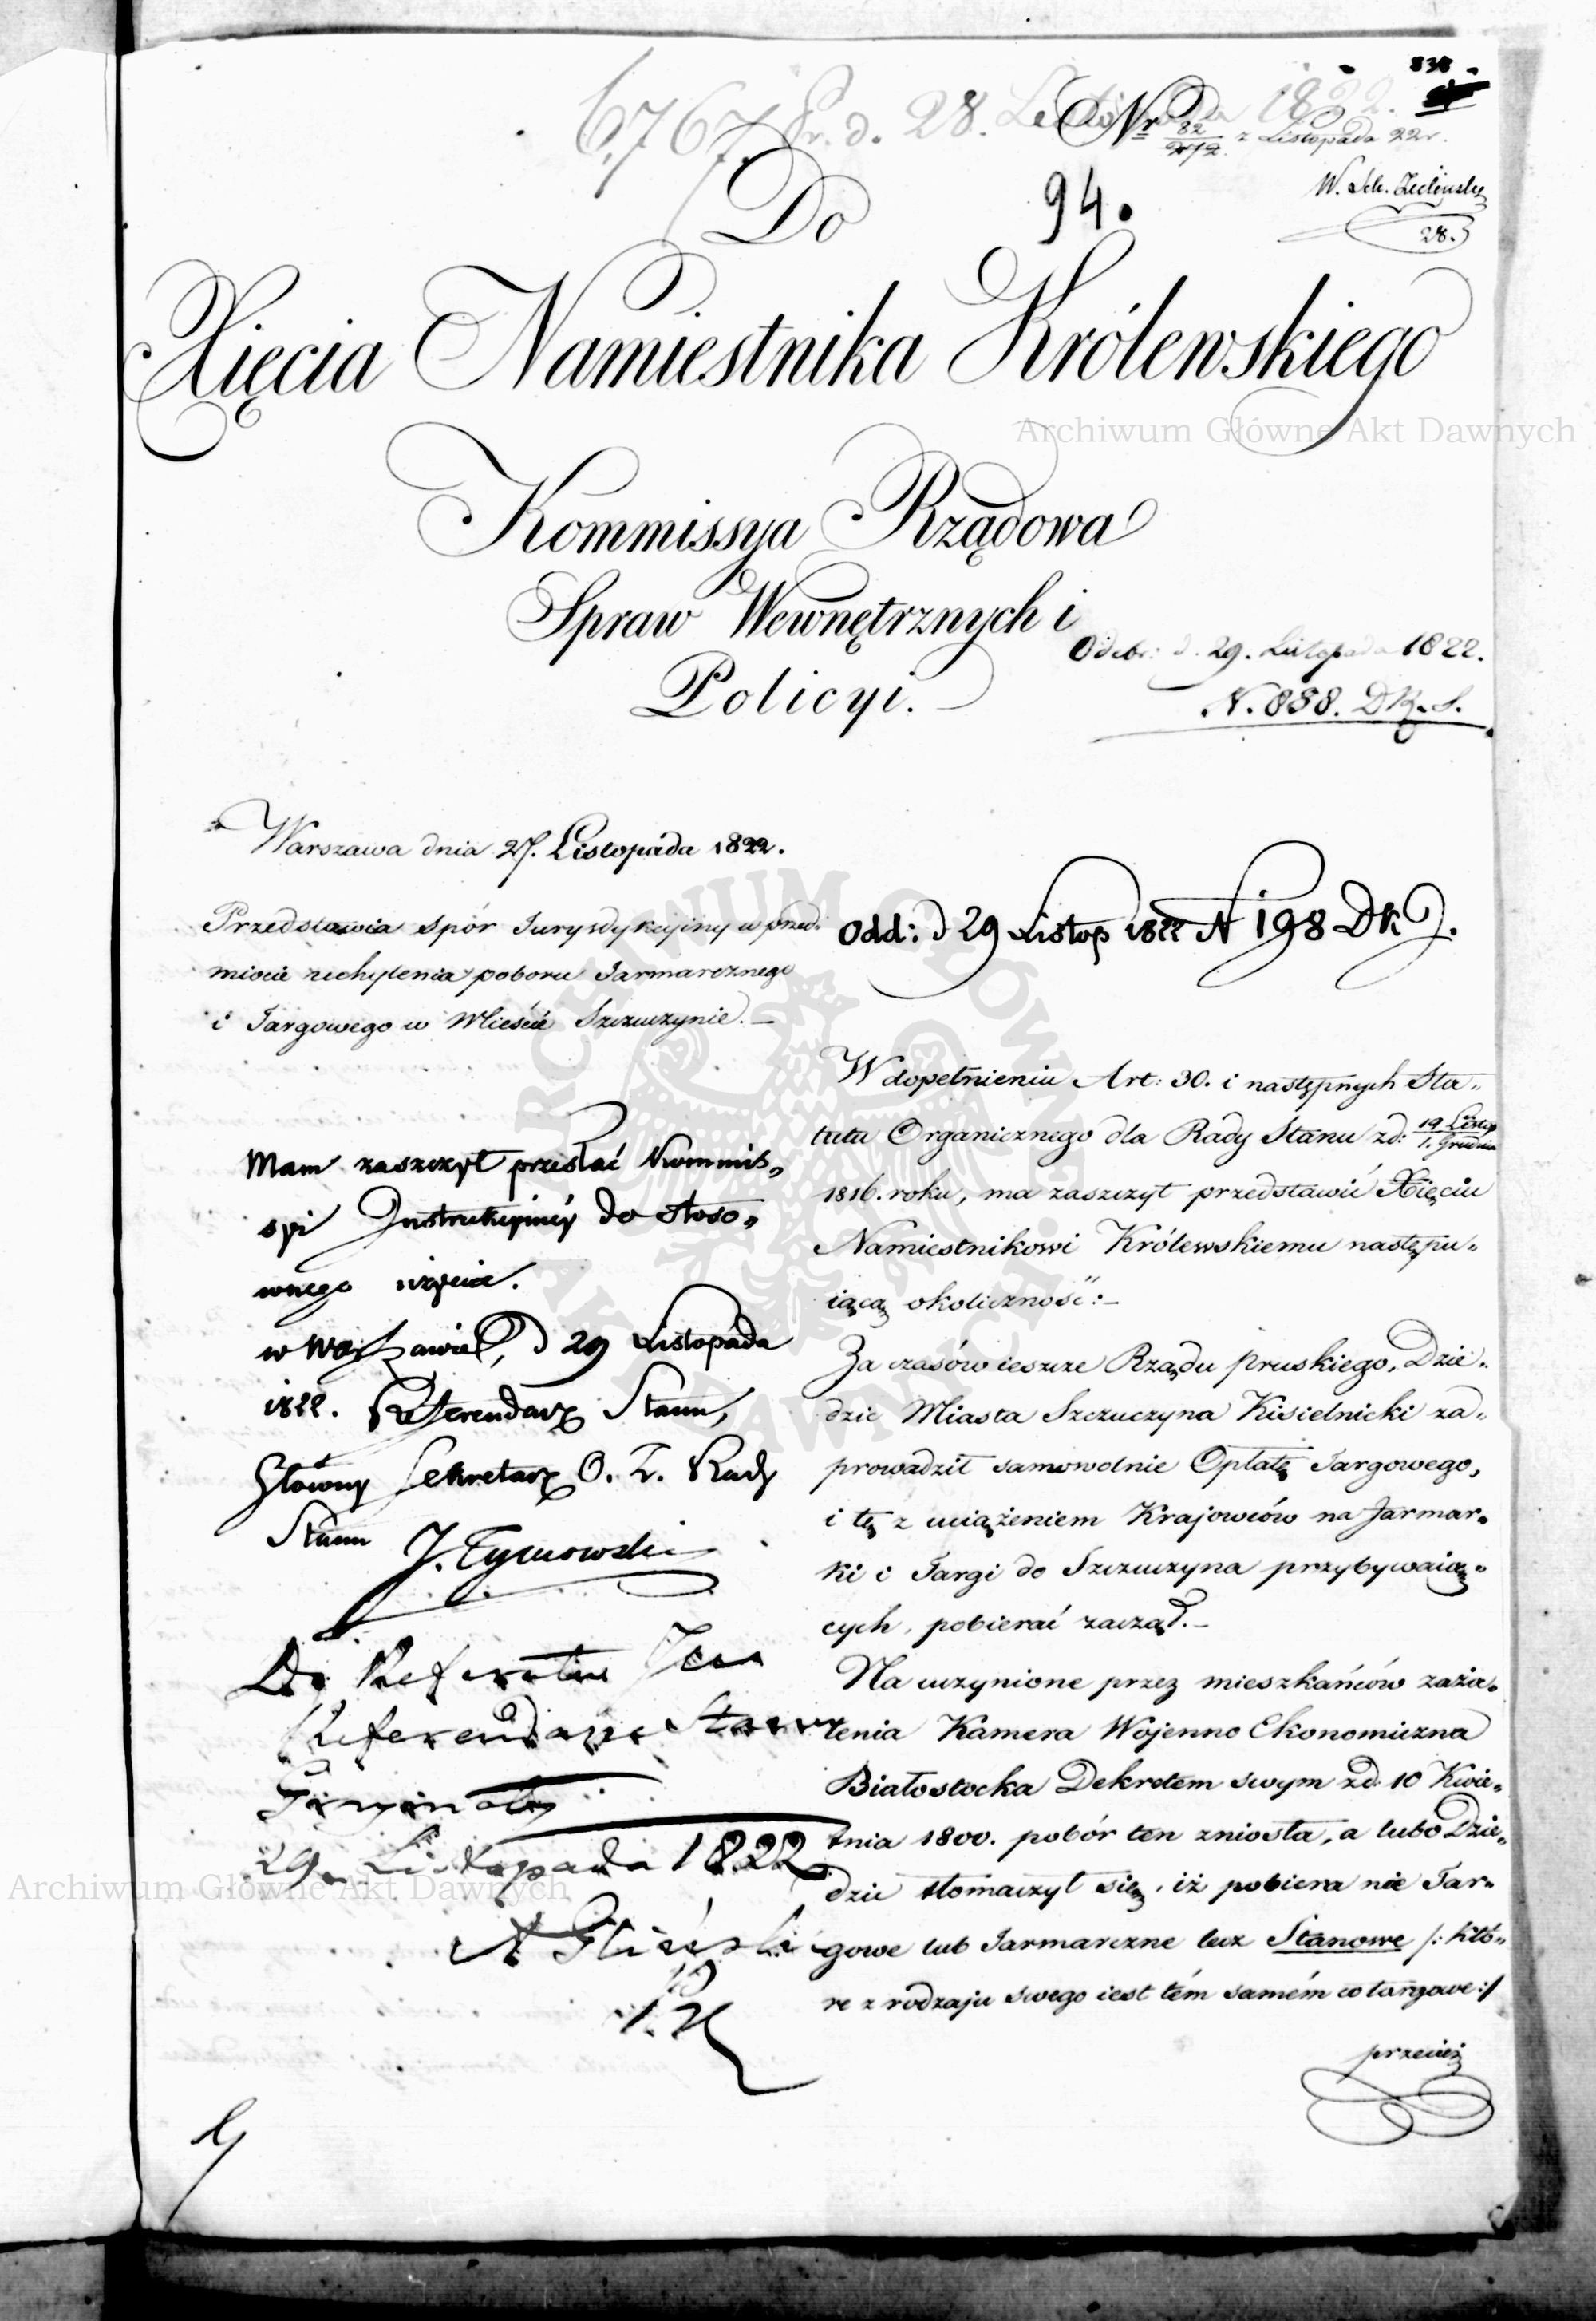 838
6767. Pr. d. 28. Listopada 1822.
Nr 82/2472. z Listopada 22 r.
Do
94.
28.
Xięcia Namiestnika Królewskiego
Archiwum Główne Akt Dawnych
Kommissya Rządowa
Spraw Wewnętrznych i
Policyi.
Odebr: d. 29. Listopada 1822.
N. 838. D.K.S.
Warszawa dnia 27. Listopada 1822.
Przedstawia spór Jurysdykcyiny w przed-
miocie uchylenia poboru Jarmarcznego
i Targowego w Mieście Szczuczynie.
Odd: d 29 Listop 1822 N 198 DK J.
Mam zaszczyt przesłać Kommis„
syi Instrukcyinéy do stoso„
wnego użycia.
w Warszawie, d 29 Listopada
1822. Referendarz Stanu,
Główny Sekretarz O. Z. Rady
Stanu J. Tymowski
Do Referatu JW
Referendarza Stanu
29. Listopada 1822
W dopełnieniu Art: 30. i następnych Sta„
tutu Organicznego dla Rady Stanu z d: 19 Listop/1. Grudnia
1816. roku, ma zaszczyt przedstawić Xięciu
Namiestnikowi Królewskiemu następu„
iącą okoliczność:—
Za czasów ieszcze Rządu pruskiego, Dzie„
dzic Miasta Szczuczyna Kisielnicki za„
prowadził samowolnie Opłatę Targowego,
i tę z uciążeniem Krajowców na Jarmar„
ki i Targi do Szczuczyna przybywaią„
cych, pobierać zaczął.—
Na uczynione przez mieszkańców zaża„
lenia Kamera Wojenno Ekonomiczna
Białostocka Dekretem swym z d. 10 Kwie„
tnia 1800. pobór ten zniosła, a lubo Dzie„
dzic tłomaczył się, iż pobiera nie Tar„
gowe lub Jarmarczne lecz Stanowe /: któ„
re z rodzaju swego iest tém samém co targowe :/
przecież
Archiwum Główne Akt Dawnych
ARCHIWUM GŁÓWNE AKT DAWNYCH